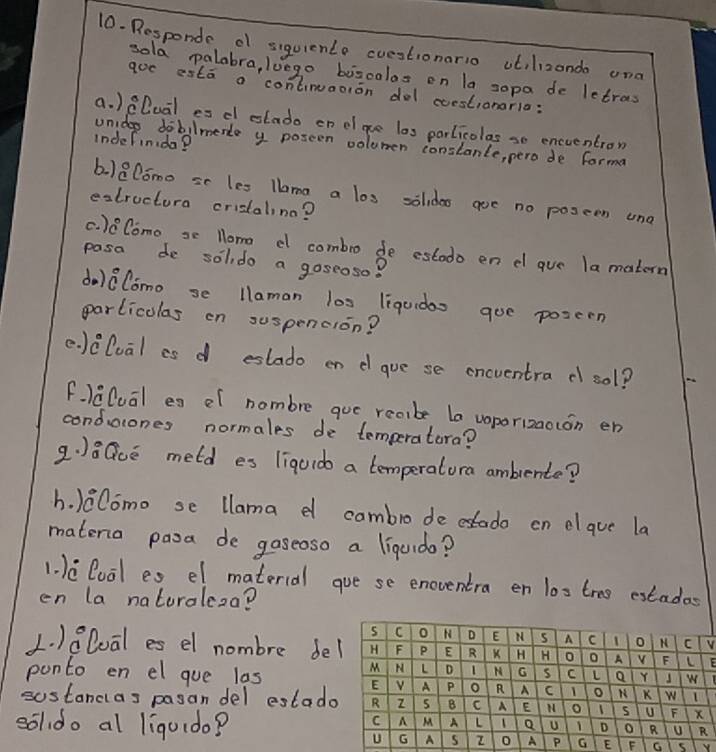 10.-Responde el siguiente cuestionario utilizando una
sola palabra, luego búscalas en la sopa de letras
que está a continuación del cuestionario:
a.) ¿Cuál es el estado en el que las partículas se encuentran
unidas débilmente y poseen volumen constante, pero de forma
indefinida?
b.) ¿Cómo se les llama a los sólidos que no poseen una
estructura cristalina?
c.) ¿Cómo se llama el cambio de estado en el que la materia
pasa de sólido a gaseoso?
d.) ¿Cómo se llaman los líquidos que poseen
partículas en suspención?
e.) ¿Cuál es el estado en el que se encuentra el sol?
f.) ¿Cuál es el nombre que recibe la vaporización en
condiciones normales de temperatura?
g.) ¿Qué metal es líquido a temperatura ambiente?
h.) ¿Cómo se llama el cambio de estado en el que la
materia pasa de gaseoso a líquido?
i.) ¿Cuál es el material que se encuentra en los tres estados
en la naturaleza?
j.) ¿Cuál es el nombre del
punto en el que las
sustancias pasan del estado
sólido al líquido?
S C O N D E N S A C I O N C V
H F P E R K H H O O A V F L E
M N L D I N G S C L Q Y J W I
E V A P O R A C I O N K W I
R Z S B C A E N O I S U F X
C A M A L I Q U I D O R U R
U G A S Z O A P G E F G S